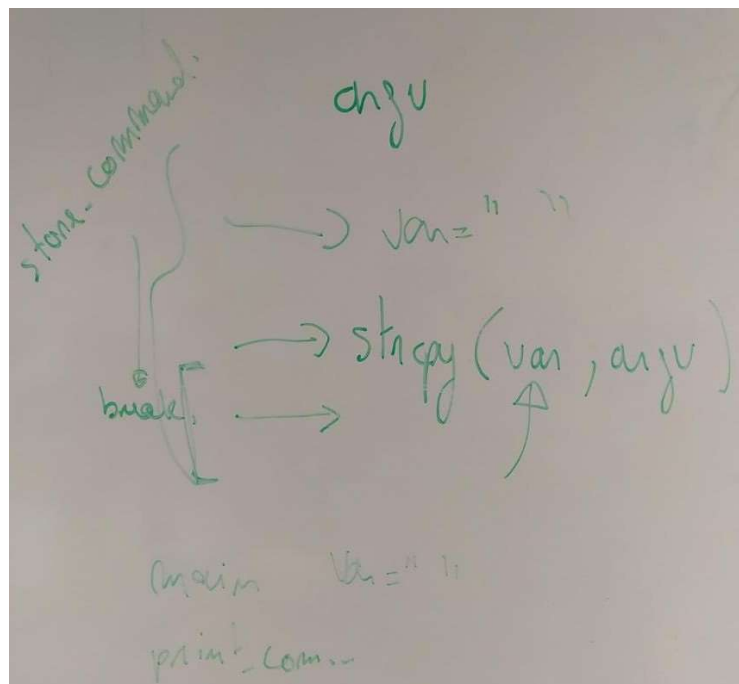 store_command:
argv
var = " "
strcpy (var, argv)
break
main var = " "
print_com...